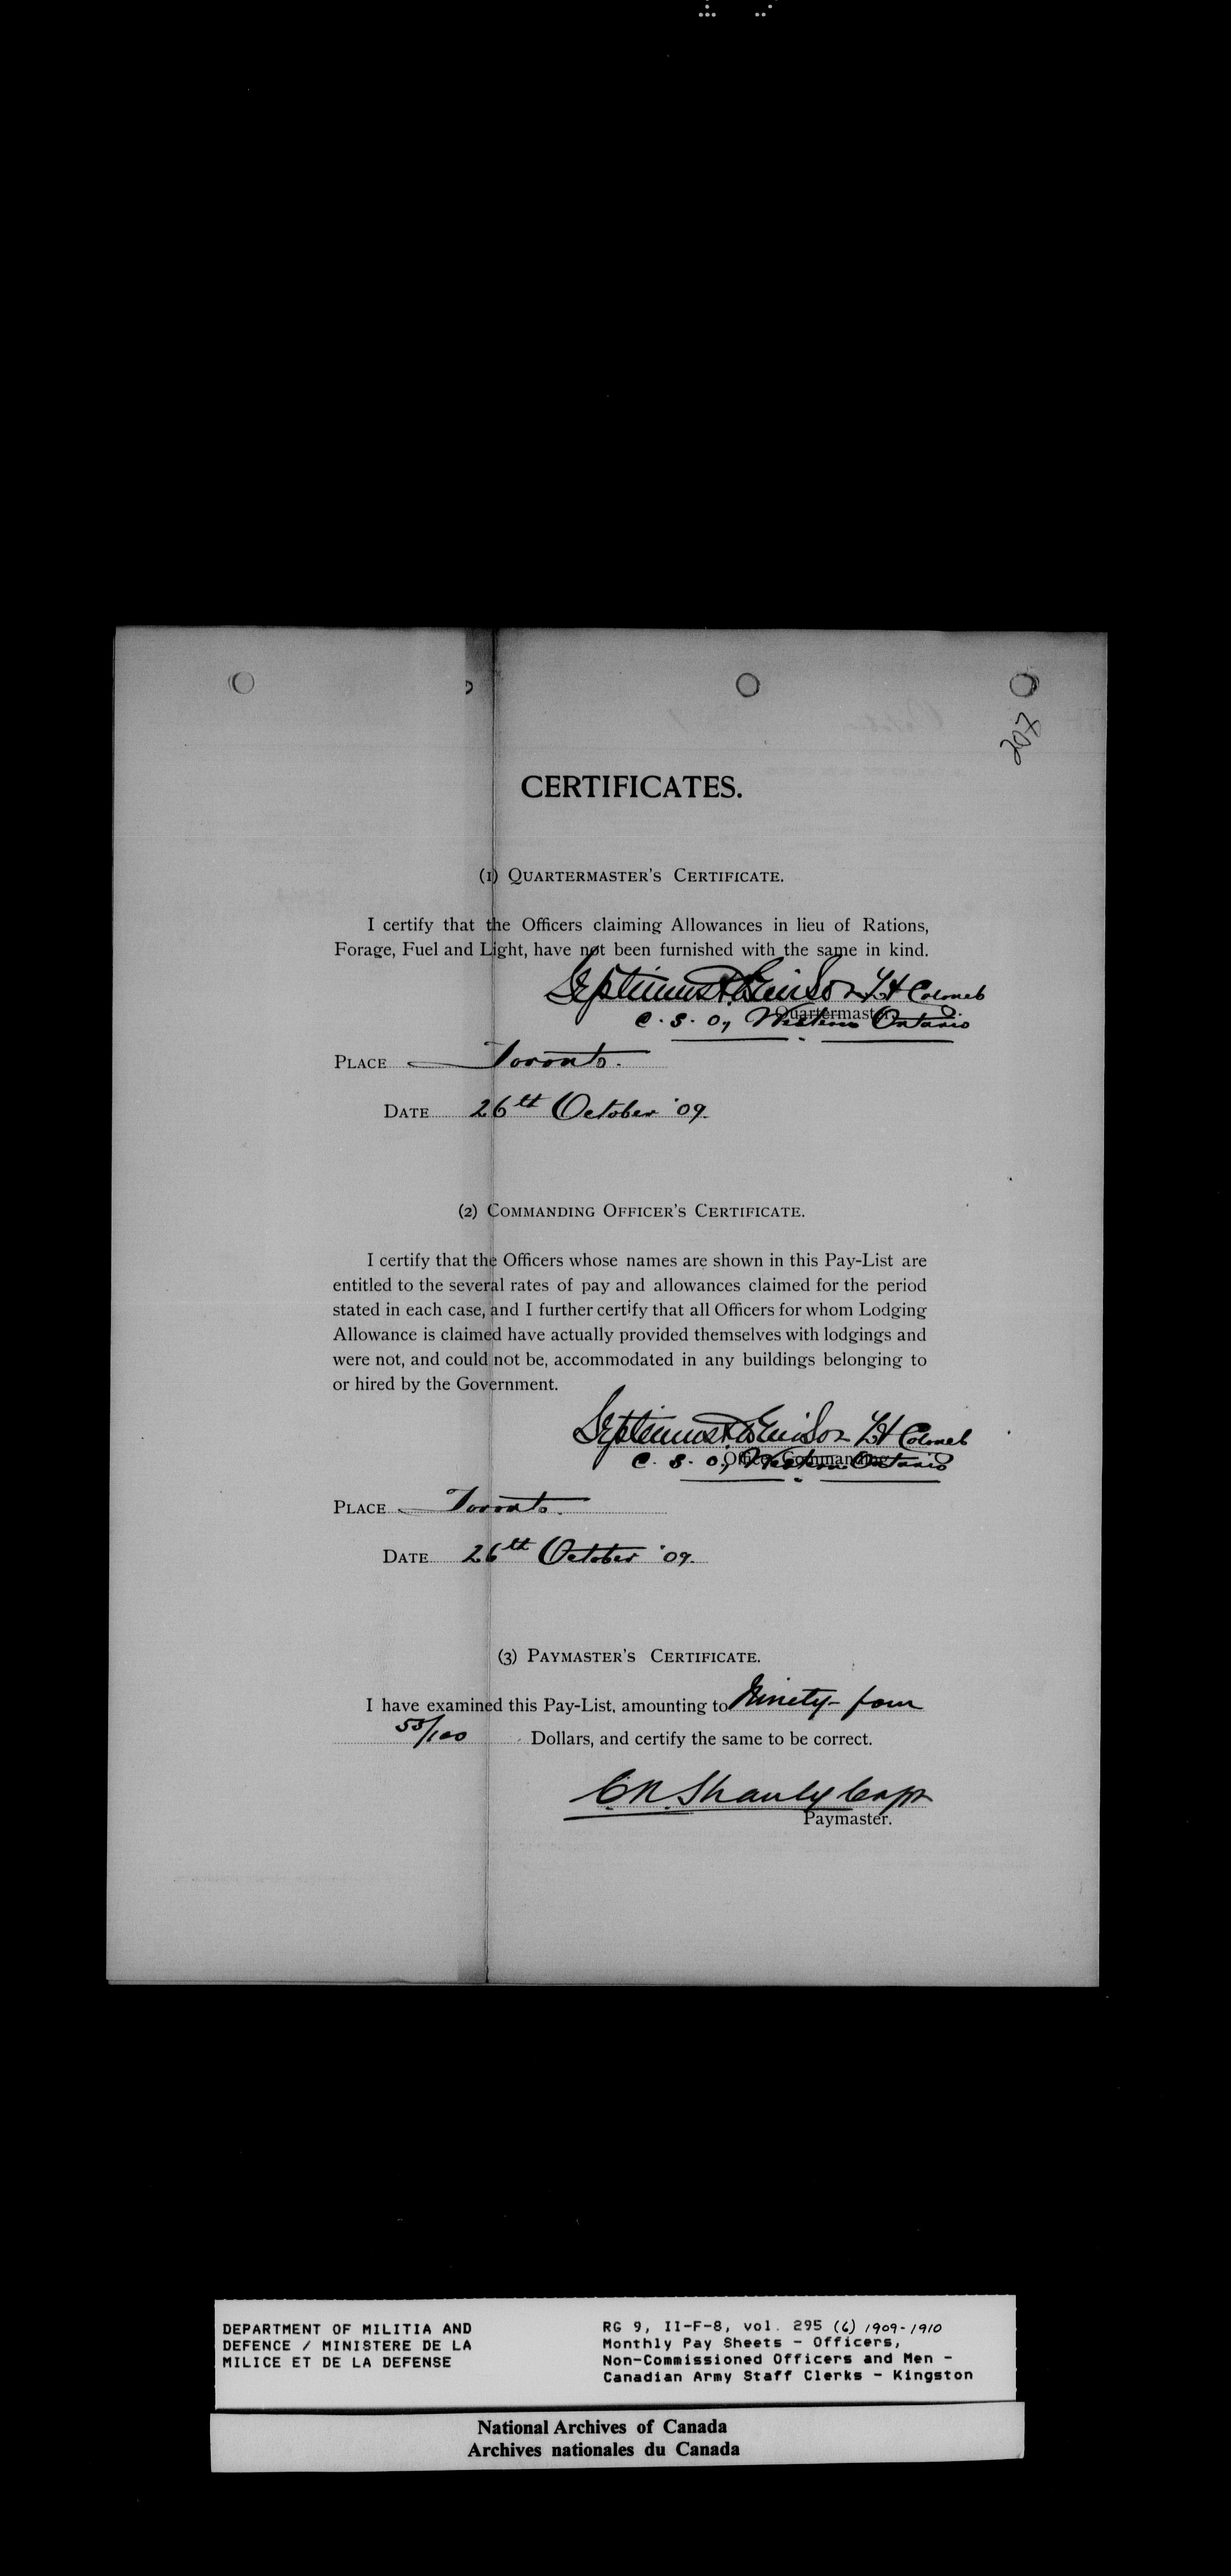 207
CERTIFICATES.
(1) QUARTERMASTER'S CERTIFICATE.
I certify that the Officers claiming Allowances in lieu of Rations,
Forage, Fuel and Light, have not been furnished with the same in kind.
Septimus Denison Lt Colonel
Quartermaster.
C. S. O, Western Ontario
PLACE Toronto.
DATE 26th October '09.
(2) COMMANDING OFFICER'S CERTIFICATE.
I certify that the Officers whose names are shown in this Pay-List are
entitled to the several rates of pay and allowances claimed for the period
stated in each case, and I further certify that all Officers for whom Lodging
Allowance is claimed have actually provided themselves with lodgings and
were not, and could not be, accommodated in any buildings belonging to
or hired by the Government.
Septimus Denison Lt Colonel
Officer Commanding
C. S. O, Western Ontario
PLACE Toronto.
DATE 26th October '09.
(3) PAYMASTER'S CERTIFICATE.
I have examined this Pay-List, amounting to Ninety-four
/100 Dollars, and certify the same to be correct.
C.N. Shanly Capt
Paymaster.
DEPARTMENT OF MILITIA AND
DEFENCE / MINISTERE DE LA
MILICE ET DE LA DEFENSE
RG 9, II-F-8, vol. 295 (6) 1909-1910
Monthly Pay Sheets - Officers,
Non-Commissioned Officers and Men -
Canadian Army Staff Clerks - Kingston
National Archives of Canada
Archives nationales du Canada